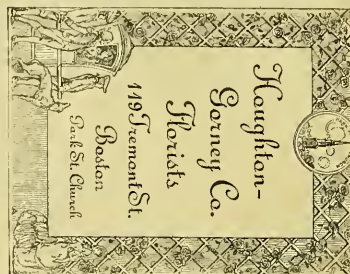 Houghton-
Gorney Co.
Florists
119 Tremont St.
Boston
Park St. Church